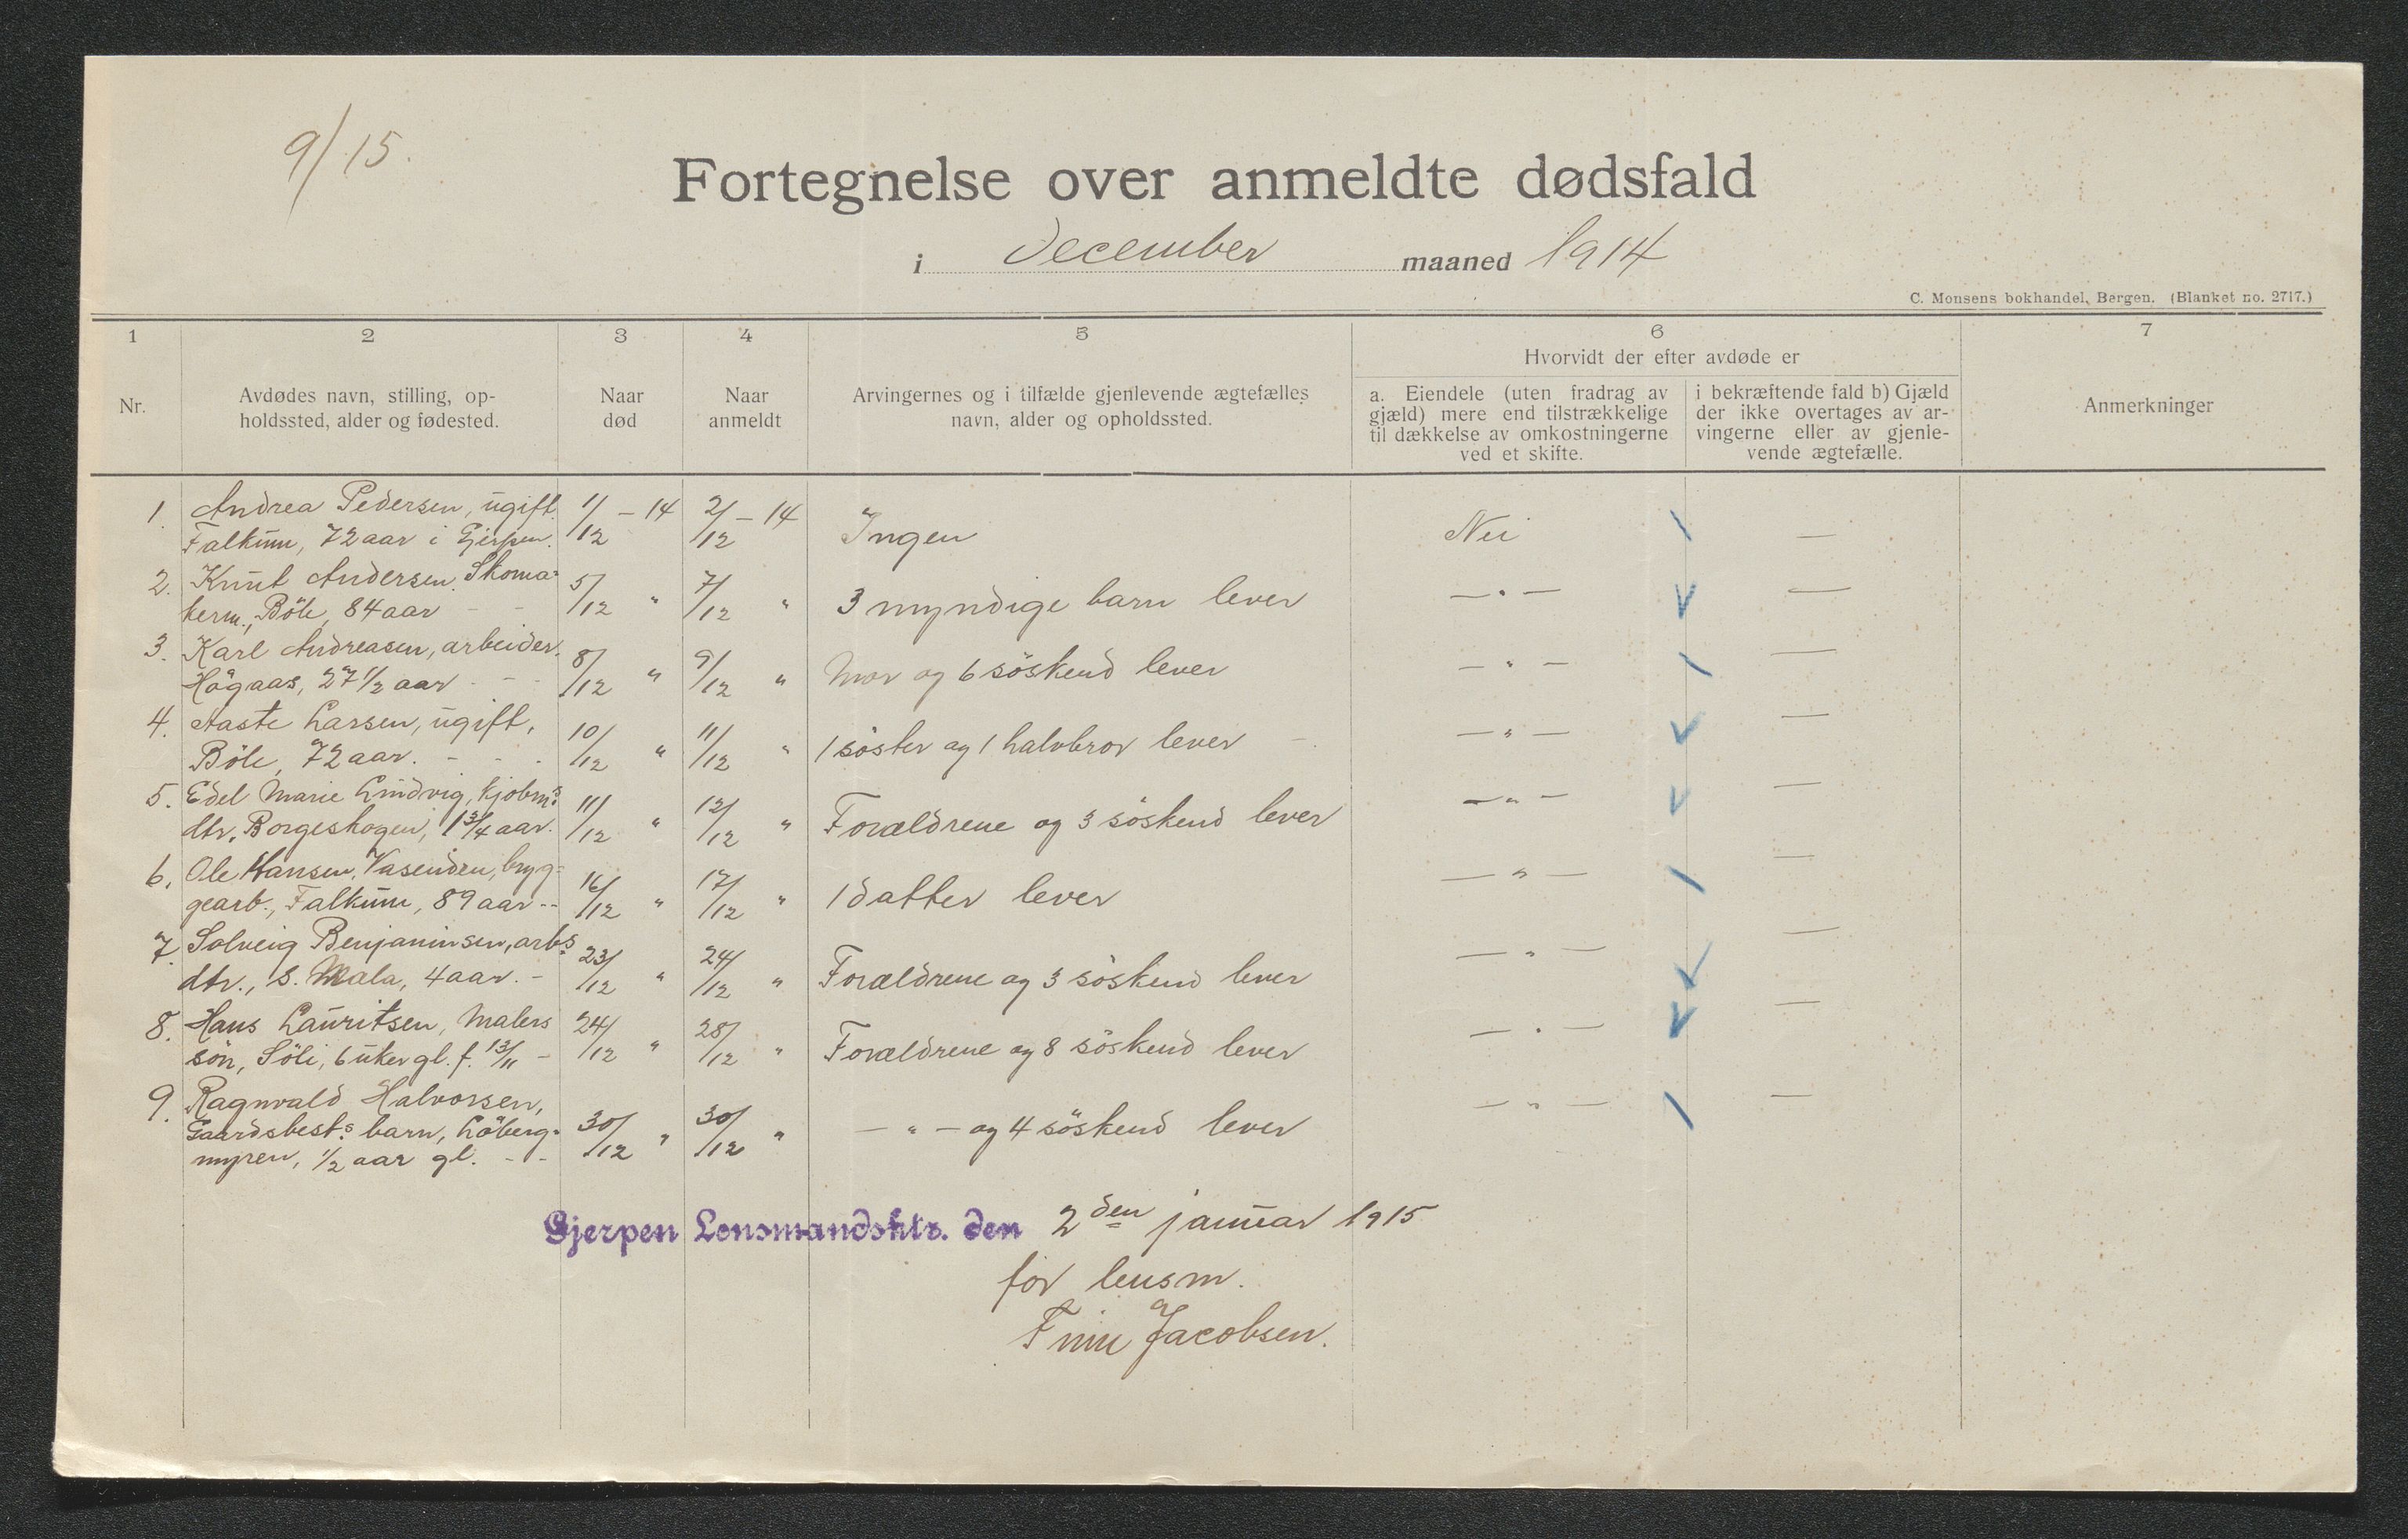 9/15.
Fortegnelse over anmeldte dødsfald
i December maaned 1914
C. Monsens bokhandel, Bergen. (Blanket no. 2717.)
1 2 3 4 5 6 7
Hvorvidt der efter avdøde er
Nr.
Avdødes navn, stilling, op-
holdssted, alder og fødested.
Naar
død
Naar
anmeldt
Arvingernes og i tilfælde gjenlevende ægtefælles
navn, alder og opholdssted.
a. Eiendele (uten fradrag av
gjæld) mere end tilstrækkelige
til dækkelse av omkostningerne
ved et skifte.
i bekræftende fald b) Gjæld
der ikke overtages av ar-
vingerne eller av gjenle-
vende ægtefælle.
Anmerkninger
1. Andrea Pedersen, ugift.
Falkum, 72 aar i Gjerpen. 1/12 – 14 2/12 – 14 Ingen Nei —
2. Knut Andersen. Skoma-
kerm., Böle, 84 aar - - 5/12 " 7/12 " 3 myndige barn lever — " — —
3. Karl Andreasen, arbeider.
Högaas, 27 1/2 aar - - 8/12 " 9/12 " Mor og 6 söskend lever — " — —
4. Aaste Larsen, ugift,
Böle, 72 aar. - - 10/12 " 11/12 " 1 söster og 1 halvbror lever — " — —
5. Edel Marie Lindvig, kjöbm.s
dtr. Borgeskogen, 1 3/4 aar. 11/12 " 12/12 " Forældrene og 3 söskend lever — " — —
6. Ole Hansen, Vasenden, bryg-
gearb., Falkum, 89 aar -- 16/12 " 17/12 " 1 datter lever — " — —
7. Solveig Benjaminsen, arb.s
dtr., S. Mæla, 4 aar. - 23/12 " 24/12 " Forældrene og 3 söskend lever — " — —
8. Hans Lauritsen, Malers
sön, Söli, 6 uker gl. f. 13/11 - 24/12 " 28/12 " Forældrene og 8 söskend lever — " — —
9. Ragnvald Halvorsen,
Gaardsbest.s barn, Löberg-
myren, 1/2 aar gl. - - 30/12 " 30/12 " — " — og 4 söskend lever — " — —
Gjerpen Lensmandsktr. den 2den januar 1915
for lensm.
Finn Jacobsen.